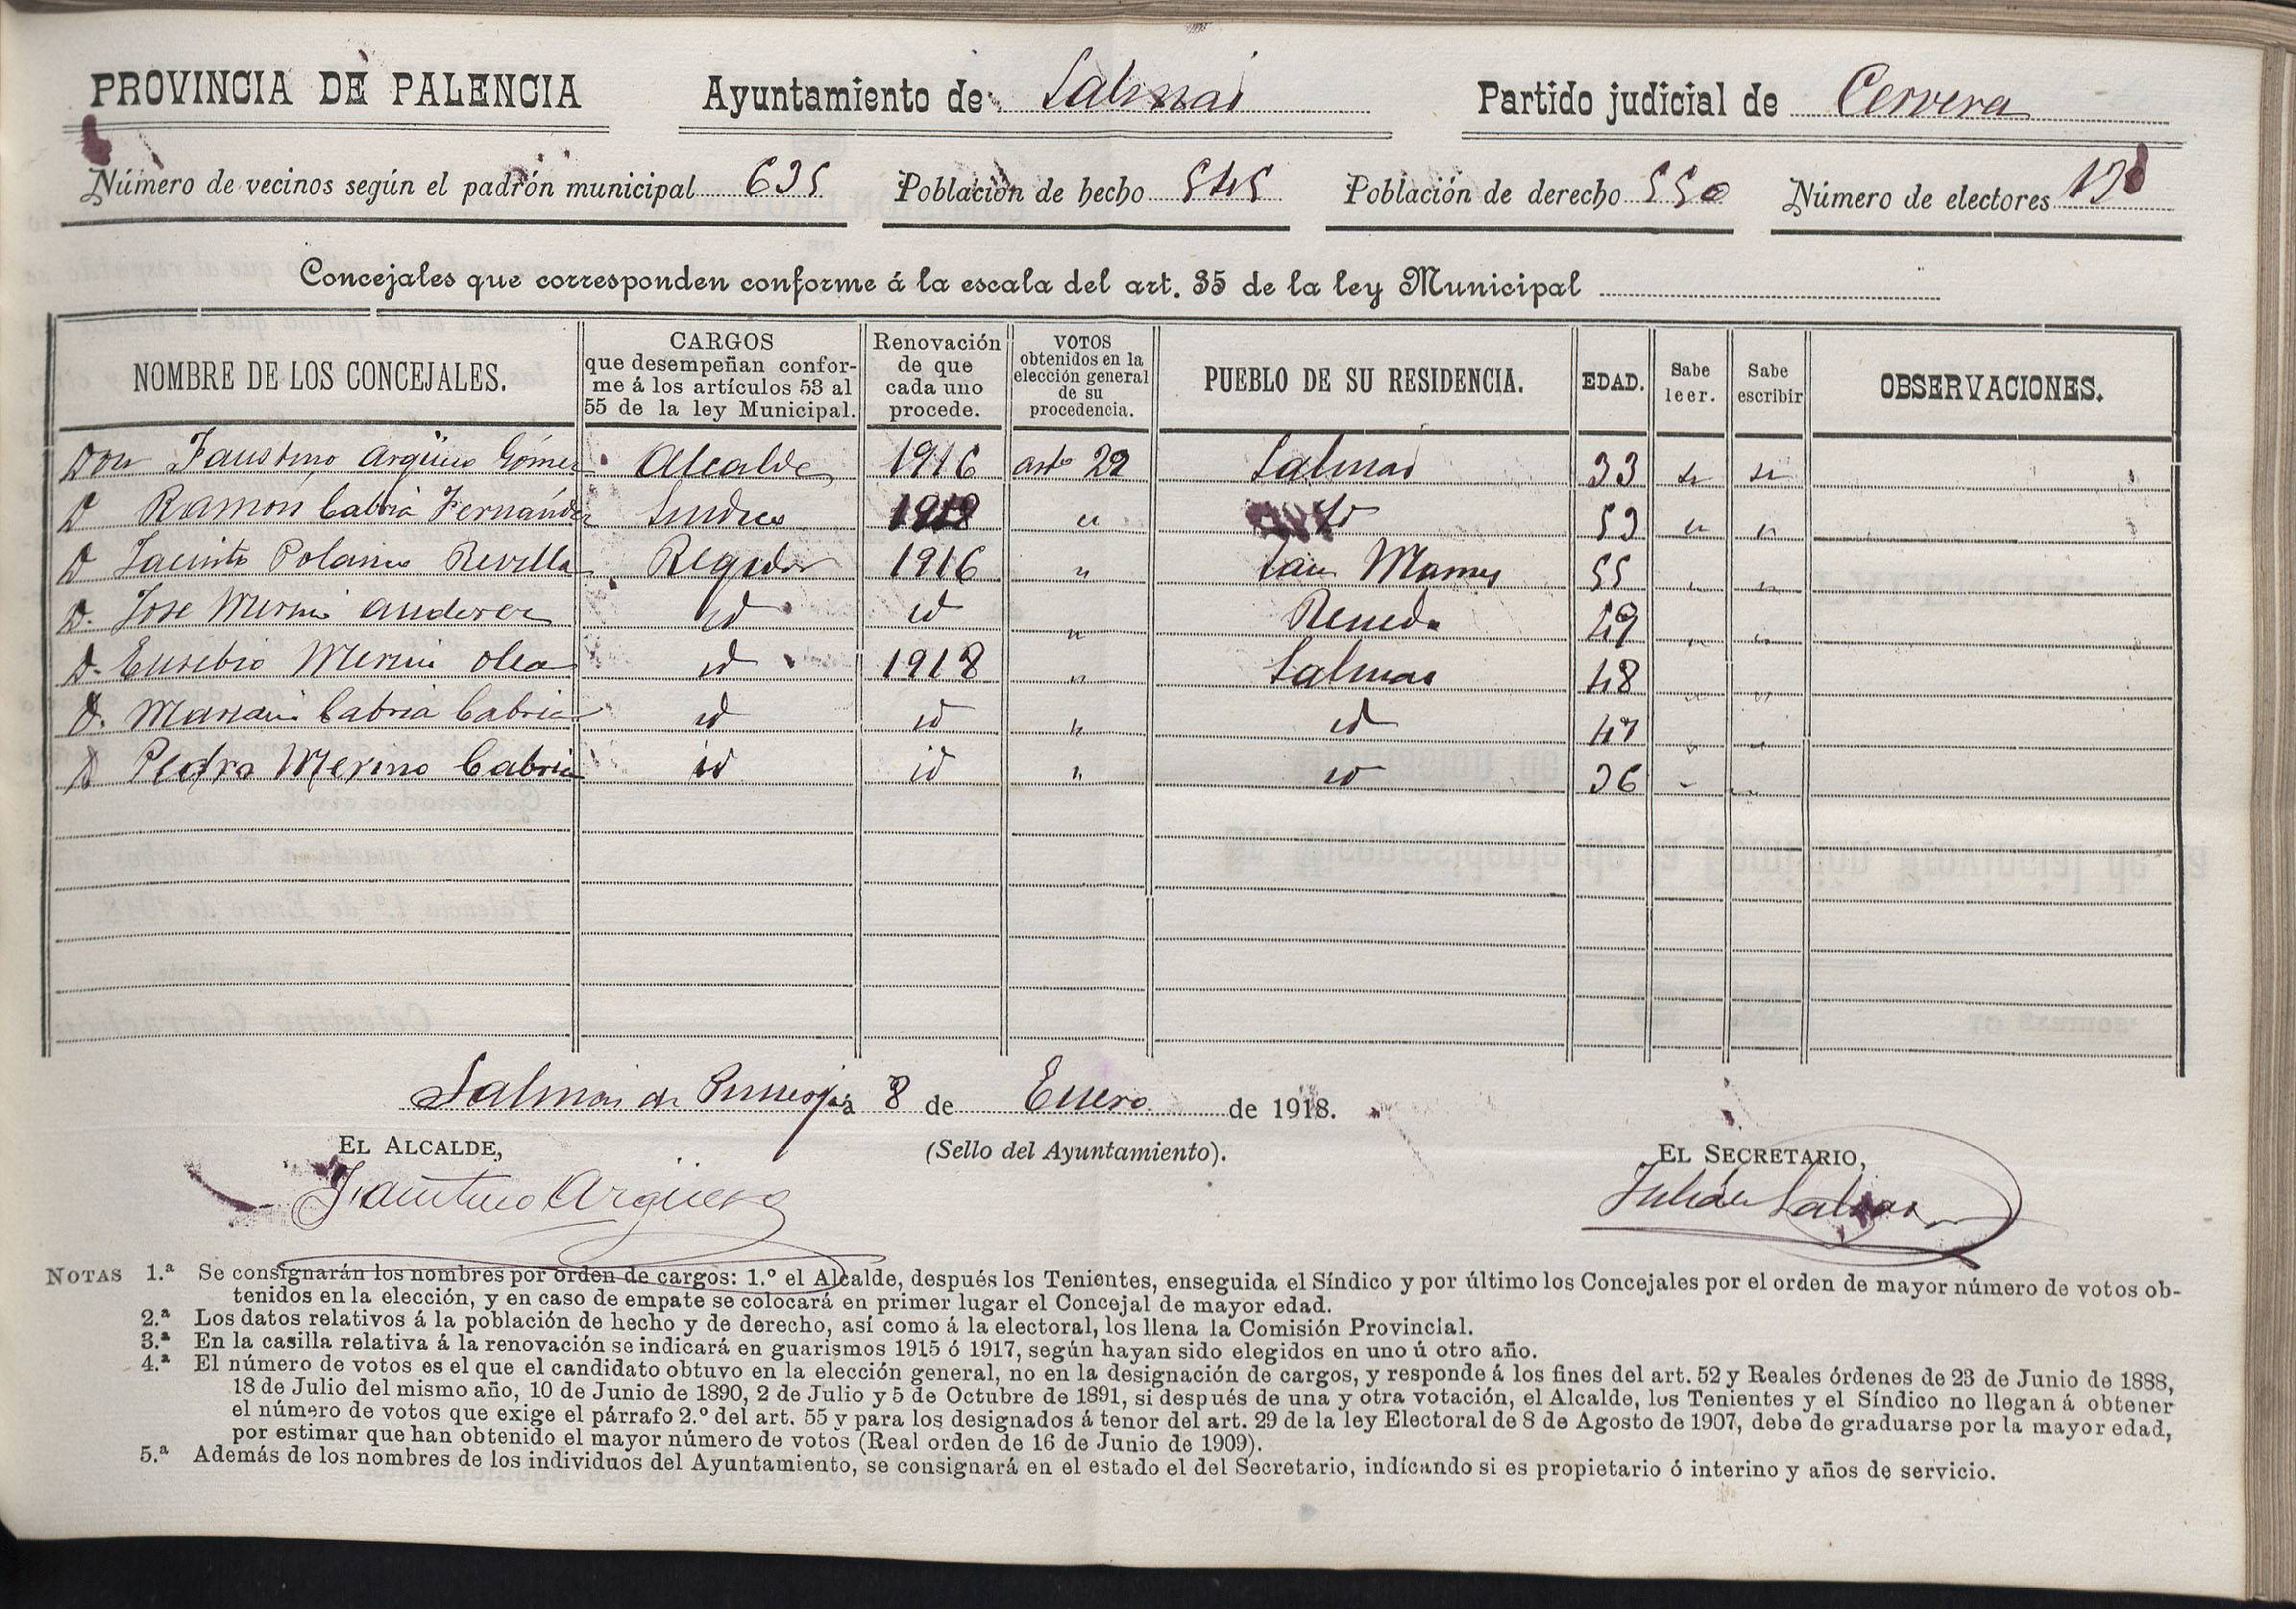 PROVINCIA DE PALENCIA Ayuntamiento de Salinas Partido judicial de Cervera
Número de vecinos según el padrón municipal 635 Población de hecho 545 Población de derecho 550 Número de electores
Concejales que corresponden conforme á la escala del art. 35 de la ley Municipal
NOMBRE DE LOS CONCEJALES. CARGOS que desempeñan conforme á los artículos 53 al 55 de la ley Municipal. Renovación de que cada uno procede. VOTOS obtenidos en la elección general de su procedencia. PUEBLO DE SU RESIDENCIA. EDAD. Sabe leer. Sabe escribir OBSERVACIONES.
Don Faustino Argüeso Gómez Alcalde 1916 artº 29 Salinas 33 si si
D Ramón Cabria Fernández Sindico 1918 " id 53 " "
D Jacinto Polanco Revilla Regidor 1916 " San Mames 55 " "
D. Jose Merino Anderez id id " Renedo 49 " "
D. Eusebio Merino Olea id 1918 " Salinas 48 " "
D. Mariano Cabria Cabria id id " id 47 " "
D Pedro Merino Cabria id id " id 36 " "
Salinas de Pisuerga á 8 de Enero de 1918.
EL ALCALDE, (Sello del Ayuntamiento). EL SECRETARIO,
Faustino Argüeso Julián Salinas
NOTAS 1.ª Se consignarán los nombres por orden de cargos: 1.º el Alcalde, después los Tenientes, enseguida el Síndico y por último los Concejales por el orden de mayor número de votos ob-
tenidos en la elección, y en caso de empate se colocará en primer lugar el Concejal de mayor edad.
2.ª Los datos relativos á la población de hecho y de derecho, así como á la electoral, los llena la Comisión Provincial.
3.ª En la casilla relativa á la renovación se indicará en guarismos 1915 ó 1917, según hayan sido elegidos en uno ú otro año.
4.ª El número de votos es el que el candidato obtuvo en la elección general, no en la designación de cargos, y responde á los fines del art. 52 y Reales órdenes de 23 de Junio de 1888,
18 de Julio del mismo año, 10 de Junio de 1890, 2 de Julio y 5 de Octubre de 1891, si después de una y otra votación, el Alcalde, los Tenientes y el Síndico no llegan á obtener
el número de votos que exige el párrafo 2.º del art. 55 y para los designados á tenor del art. 29 de la ley Electoral de 8 de Agosto de 1907, debe de graduarse por la mayor edad,
por estimar que han obtenido el mayor número de votos (Real orden de 16 de Junio de 1909).
5.ª Además de los nombres de los individuos del Ayuntamiento, se consignará en el estado el del Secretario, indicando si es propietario ó interino y años de servicio.